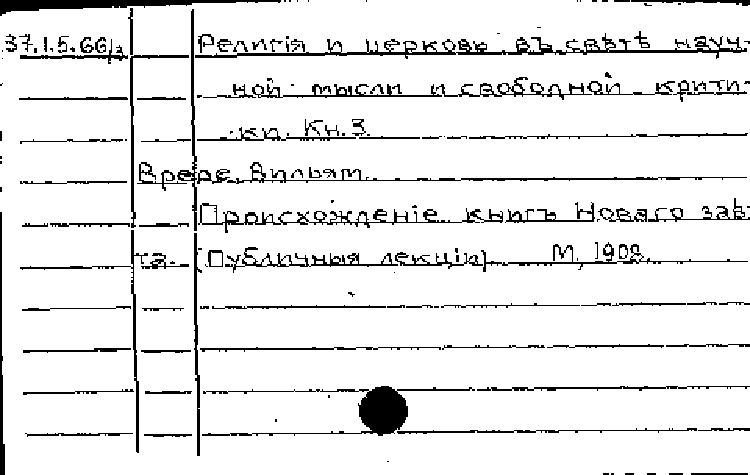 37.1.5.66/3 Религія и церковь въ свѣтѣ науч-
ной мысли и свободной крити-
ки. Кн. 3
Вреде, Вильям.
Происхожденіе книгъ Новаго завѣ
та. (Публичныя лекціи) М, 1908.